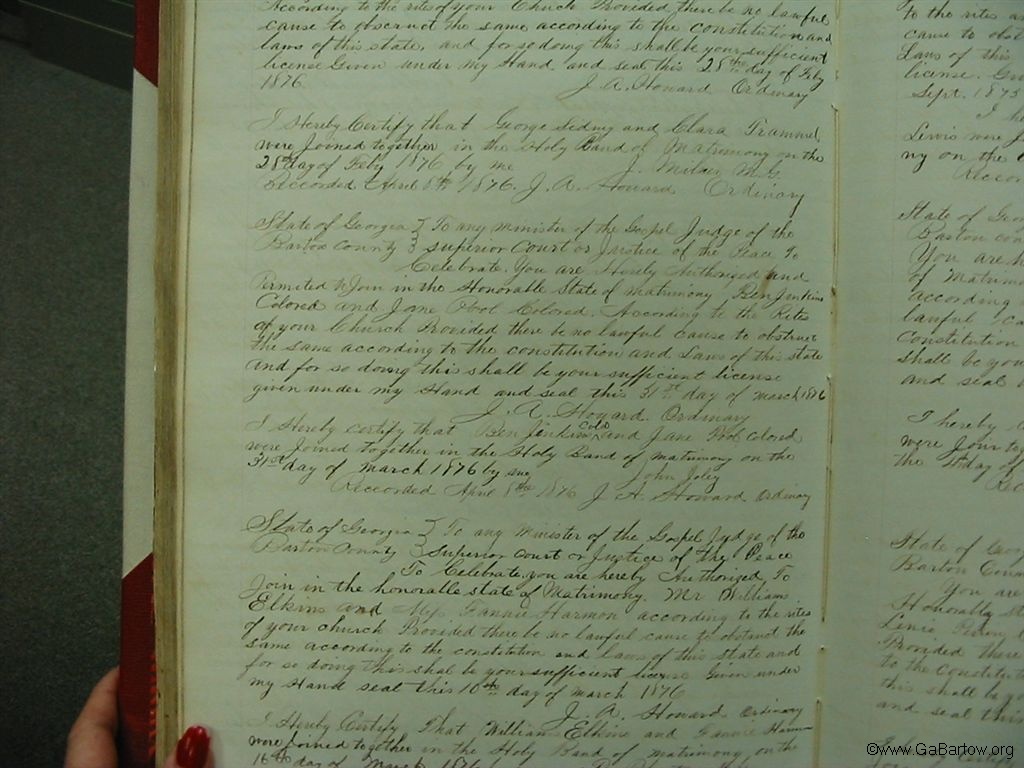 According to the rites of your Church Provided there be no lawful
cause to obscruct the same according to the constitution and
laws of this state, and for so doing this shall be your sufficient
license Given under my Hand and seal this 28th day of Feby
1876. J. A. Howard Ordinary
I Hereby Certify that George Sidney and Clara Trammel
were Joined together in the Holy Band of Matrimony on the
28th day of Feby 1876 by me J. Milner M.G.
Recorded April 8th 1876. J. A. Howard Ordinary
State of Georgia } To any minister of the Gospel Judge of the
Bartow County } Superior Court or Justice of the Peace To
Celebrate. You are Hereby Authorized and
Permited to Join in the Honorable State of matrimony Ben Jenkins
Colored and Jane Pool Colored. According to the Rites
of your Church Provided there be no lawful cause to obstruct
the same according to the constitution and Laws of this state
and for so doing this shall be your sufficient license
given under my Hand and seal this 31st day of march 1876
J. A. Howard. Ordinary
I Hereby certify that Ben Jenkins Cold and Jane Pool Colored
were Joined together in the Holy Band of matrimony on the
31st day of march 1876 by me John Joley
Recorded April 8th 1876 J. A. Howard Ordinary
State of Georgia } To any Minister of the Gospel Judge of the
Bartow County } Superior Court or Justice of the Peace
To Celebrate, you are hereby Authorized, To
Join in the honorable state of Matrimony. Mr Williams
Elkins and Miss Fannie Harmon according to the rites
of your church Provided there be no lawful cause to obstruct the
same according to the constitution and laws of this state and
for so doing this shal be your sufficient license Given under
my Hand seal this 10th day of march 1876
J. A. Howard Ordinary
I Hereby Certify That William Elkins and Fannie
were Joined together in the Holy Band of matrimony on the
16th day of March 1876
to the rites
cause to
Laws of this
license.
Sept. 1875
I
Lewis were
ny on the
State of
Bartow
You are
of Matrim
according
lawful
constitution
shall be you
and seal
I hereby
were Join
the day of
State of
Bartow
You are
Honorable
Provided there
to the constitu
this shall
and seal this
©www.GaBartow.org